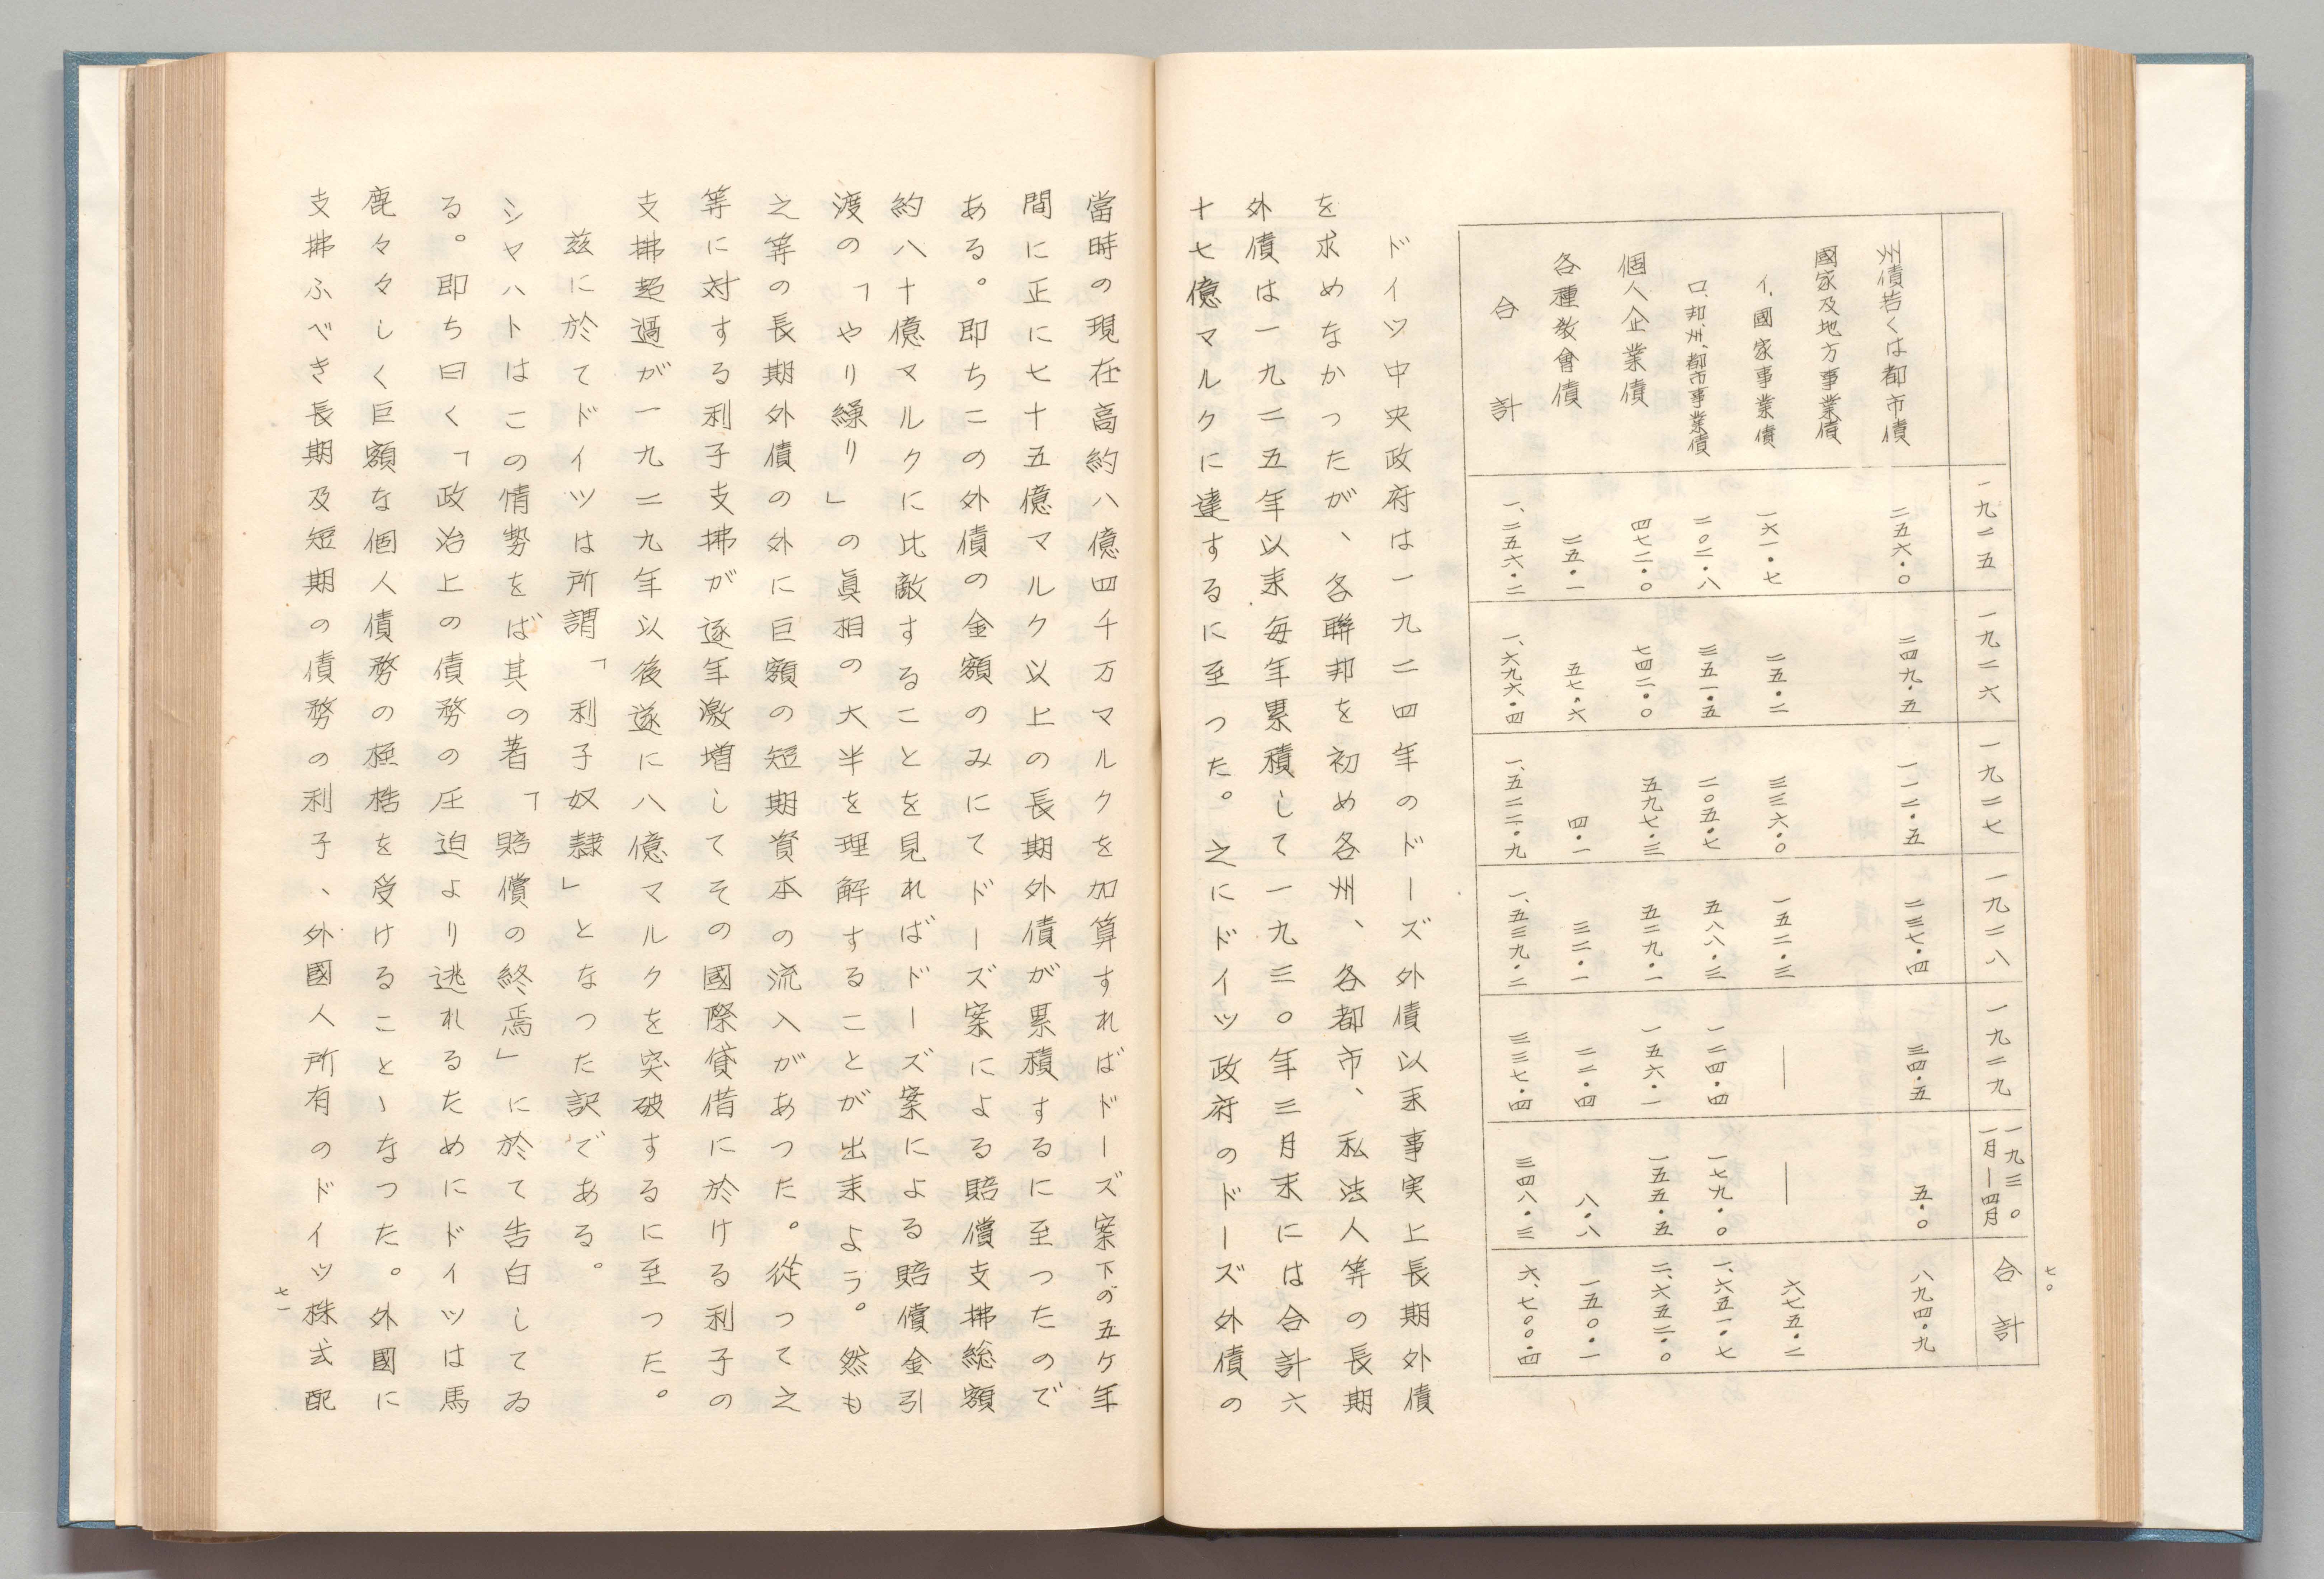 七〇
一九二五 一九二六 一九二七 一九二八 一九二九 一九三〇一月ー四月 合計
州債若くは都市債 二五六・〇 二四九・五 一一二・五 二三七・四 三四・五 五・〇 八九四・九
國家及地方事業債
イ、國家事業債 一六一・七 二五・二 三三六・〇 一五二・三 — — 六七五・二
ロ、邦、州、都市事業債 二〇二・八 三五一・五 二〇五・七 五八八・三 一二四・四 一七九・〇 一、六五一・七
個人企業債 四七二・〇 七四二・〇 五九七・三 五二九・一 一五六・一 一五五・五 二、六五二・〇
各種教會債 二五・一 五七・六 四・一 三二・一 二二・四 八・八 一五〇・一
合計 一、二五六・二 一、六九六・四 一、五二二・九 一、五三九・二 三三七・四 三四八・三 六、七〇〇・四
ドイツ中央政府は一九二四年のドーズ外債以来事実上長期外債
を求めなかったが、各聯邦を初め各州、各都市、私法人等の長期
外債は一九二五年以来毎年累積して一九三〇年三月末には合計六
十七億マルクに達するに至つた。之にドイツ政府のドーズ外債の
當時の現在高約八億四千万マルクを加算すればドーズ案下の五ケ年
間に正に七十五億マルク以上の長期外債が累積するに至つたので
ある。即ちこの外債の金額のみにてドーズ案による賠償支拂総額
約八十億マルクに比敵することを見ればドーズ案による賠償金引
渡の「やり繰り」の眞相の大半を理解することが出来よう。然も
之等の長期外債の外に巨額の短期資本の流入があつた。従つて之
等に対する利子支拂が逐年激増してその國際貸借に於ける利子の
支拂超過が一九二九年以後遂に八億マルクを突破するに至つた。
茲に於てドイツは所謂「利子奴隷」となつた訳である。
シヤハトはこの情勢をば其の著「賠償の終焉」に於て告白してゐ
る。即ち曰く「政治上の債務の圧迫より逃れるためにドイツは馬
鹿々々しく巨額な個人債務の桎梏を受けることゝなつた。外國に
支拂ふべき長期及短期の債務の利子、外國人所有のドイツ株式配
七一